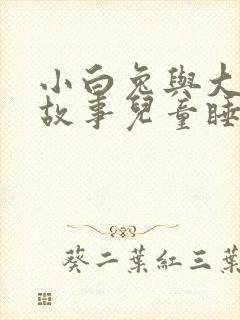 小白兔與大
故事兒童睡
葵二葉紅三葉